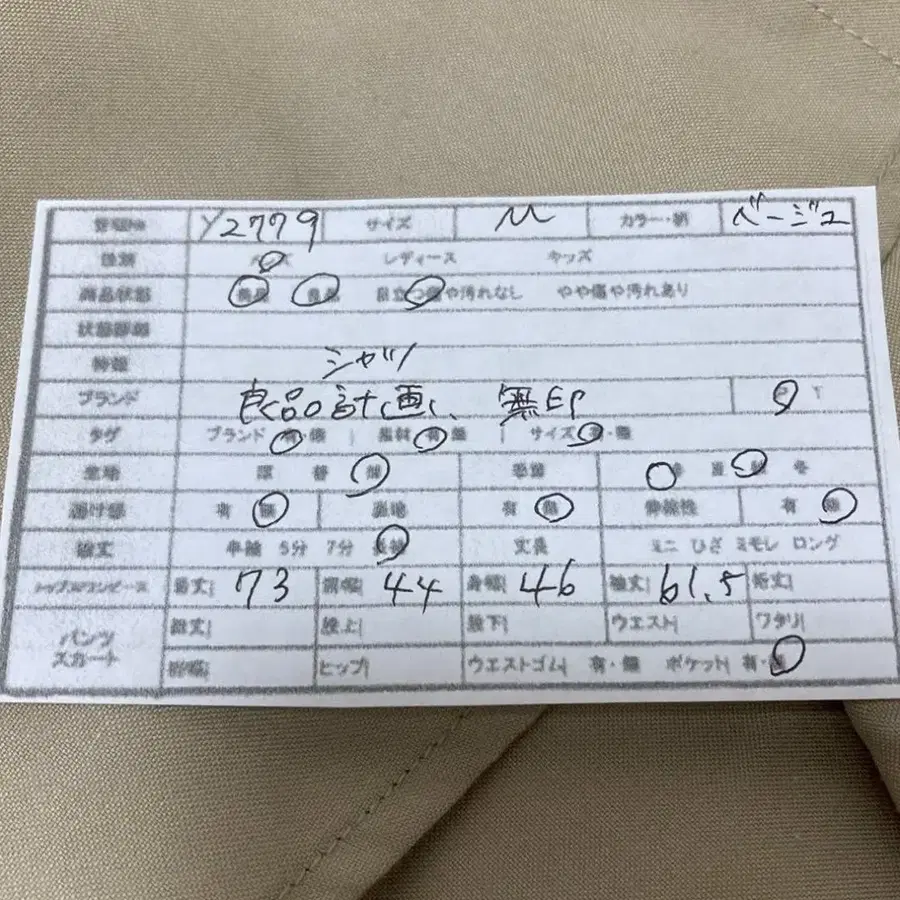 管理No Y2779 サイズ M カラー・柄 ベージュ
性別 メンズ レディース キッズ
商品状態 美品 良品 目立つ傷や汚れなし やや傷や汚れあり
状態詳細
特徴 シャツ
ブランド 良品計画、無印
タグ ブランド 有・無 | 素材 有・無 | サイズ 有・無
生地 厚 普 薄 季節 春 夏 秋 冬
透け感 有 無 裏地 有 無 伸縮性 有 無
袖丈 半袖 5分 7分 長袖 丈長 ミニ ひざ ミモレ ロング
トップス/ワンピース 着丈| 73 肩幅| 44 身幅| 46 袖丈| 61.5 裄丈|
パンツ スカート 総丈| 股上| 股下| ウエスト| ワタリ|
裾幅| ヒップ| ウエストゴム| 有・無 ポケット| 有・無